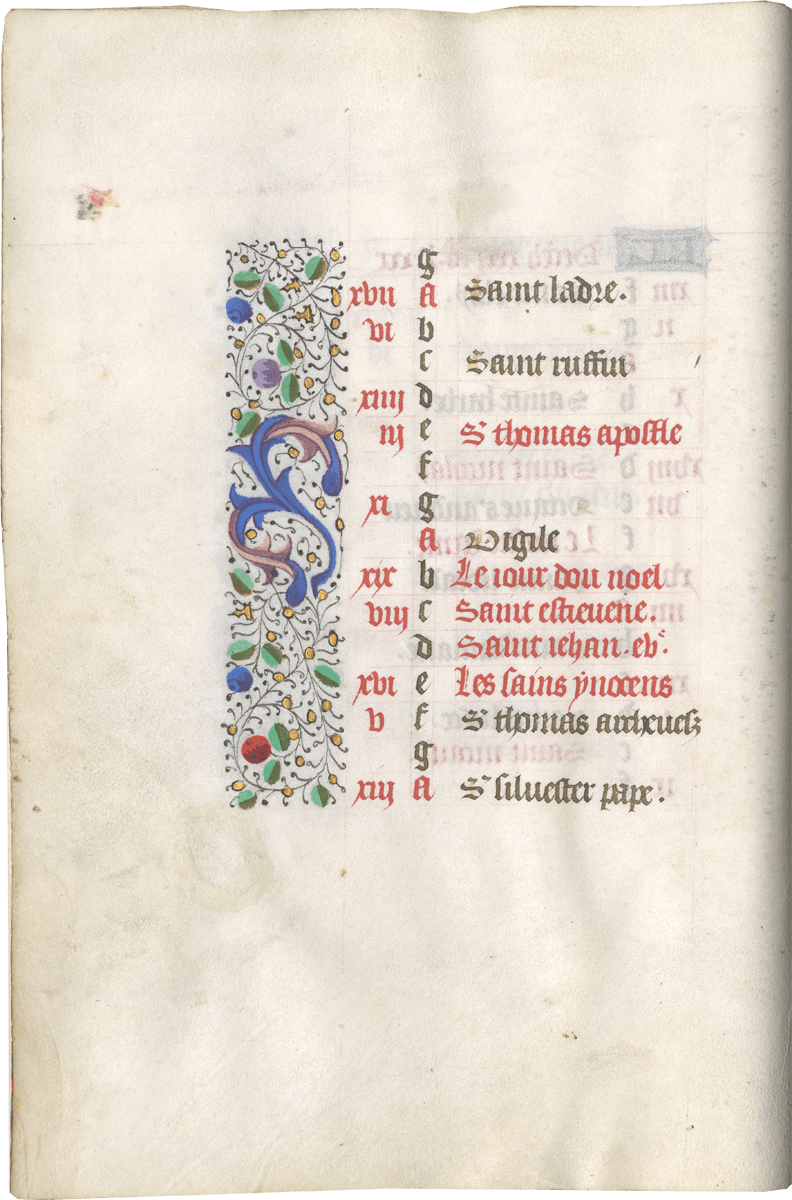 g
xvii A Saint ladre.
vi b
c Saint ruffin
xiiii d
iij e S' thomas apostle
f
xi g
A Vigile
xix b Le iour dou noel
viij c Saint estieuene.
d Saint iehan. ev̄.
xvi e Les sains ynocens
v f S' thomas archeuesq
g
xiij A S' siluester pape.